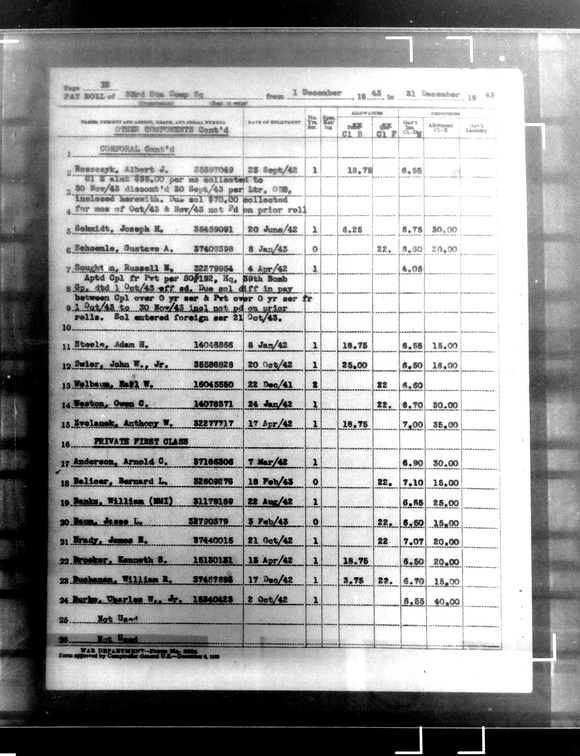 Page
PAY ROLL of 33rd Sta Comp Sq from 1 December , 19 43, to 31 December , 19 43
NAMES, PRESENT AND ABSENT, GRADE, AND SERIAL NUMBER DATE OF ENLISTMENT No. Yrs. Ser. ALLOTMENTS
OTHER COMPONENTS Cont'd Cl B Cl F Gov't Ins. Allotment Cl-E Gov't Laundry
1 CORPORAL Cont'd
2 Rosscyk, Albert J. 35397049 23 Sept/42 1 18.75 6.55
Cl E almt $35.00 per mo collected to
3 30 Nov/43 discont'd 30 Sept/43 per Ltr, ODB,
inclosed herewith. Due sol $70.00 collected
4 for mos of Oct/43 & Nov/43 not Pd on prior roll
5 Schmidt, Joseph H. 35459091 20 June/42 1 6.25 6.75 30.00
6 Schoenle, Gustave A. 37409398 8 Jan/43 0 22. 6.60 20.00
7 Russell E. 32279954 4 Apr/42 1 4.05
Aptd Cpl fr Pvt per SO#192, Hq, 39th Bomb
8 Gp, dtd 1 Oct/43 eff sd. Due sol diff in pay
between Cpl over 0 yr ser & Pvt over 0 yr ser fr
9 1 Oct/43 to 30 Nov/43 incl not pd on prior
rolls. Sol entered foreign ser 21 Oct/43.
10
11 Steele, Adam H. 14048866 8 Jan/42 1 18.75 6.55 15.00
12 Swier, John W., Jr. 35586828 20 Oct/42 1 25.00 6.50 16.00
13 Welbaum, Earl W. 16045550 22 Dec/41 2 22 6.60
14 Weston, Owen C. 14078371 24 Jan/42 1 22. 6.70 30.00
15 Zvolanek, Anthony W. 32277717 17 Apr/42 1 18.75 7.00 35.00
16 PRIVATE FIRST CLASS
17 Anderson, Arnold C. 37166306 7 Mar/42 1 6.90 30.00
18 Balicer, Bernard L. 32809276 18 Feb/43 0 22. 7.10 15.00
19 Banks, William (NMI) 31179159 22 Aug/42 1 6.55 25.00
20 Baum, Jesse L. 32790379 3 Feb/43 0 22. 6.50 15.00
21 Brady, James E. 37440015 21 Oct/42 1 22 7.07 20.00
22 Brocker, Kenneth S. 15130131 13 Apr/42 1 18.75 6.50 20.00
23 Buchanan, William R. 37457593 17 Dec/42 1 3.75 22. 6.70 15.00
24 Burke, Charles W., Jr. 15340423 2 Oct/42 1 6.55 40.00
25 Not Used
26 Not Used
WAR DEPARTMENT—Form No.
Form approved by Comptroller General U.S.—December